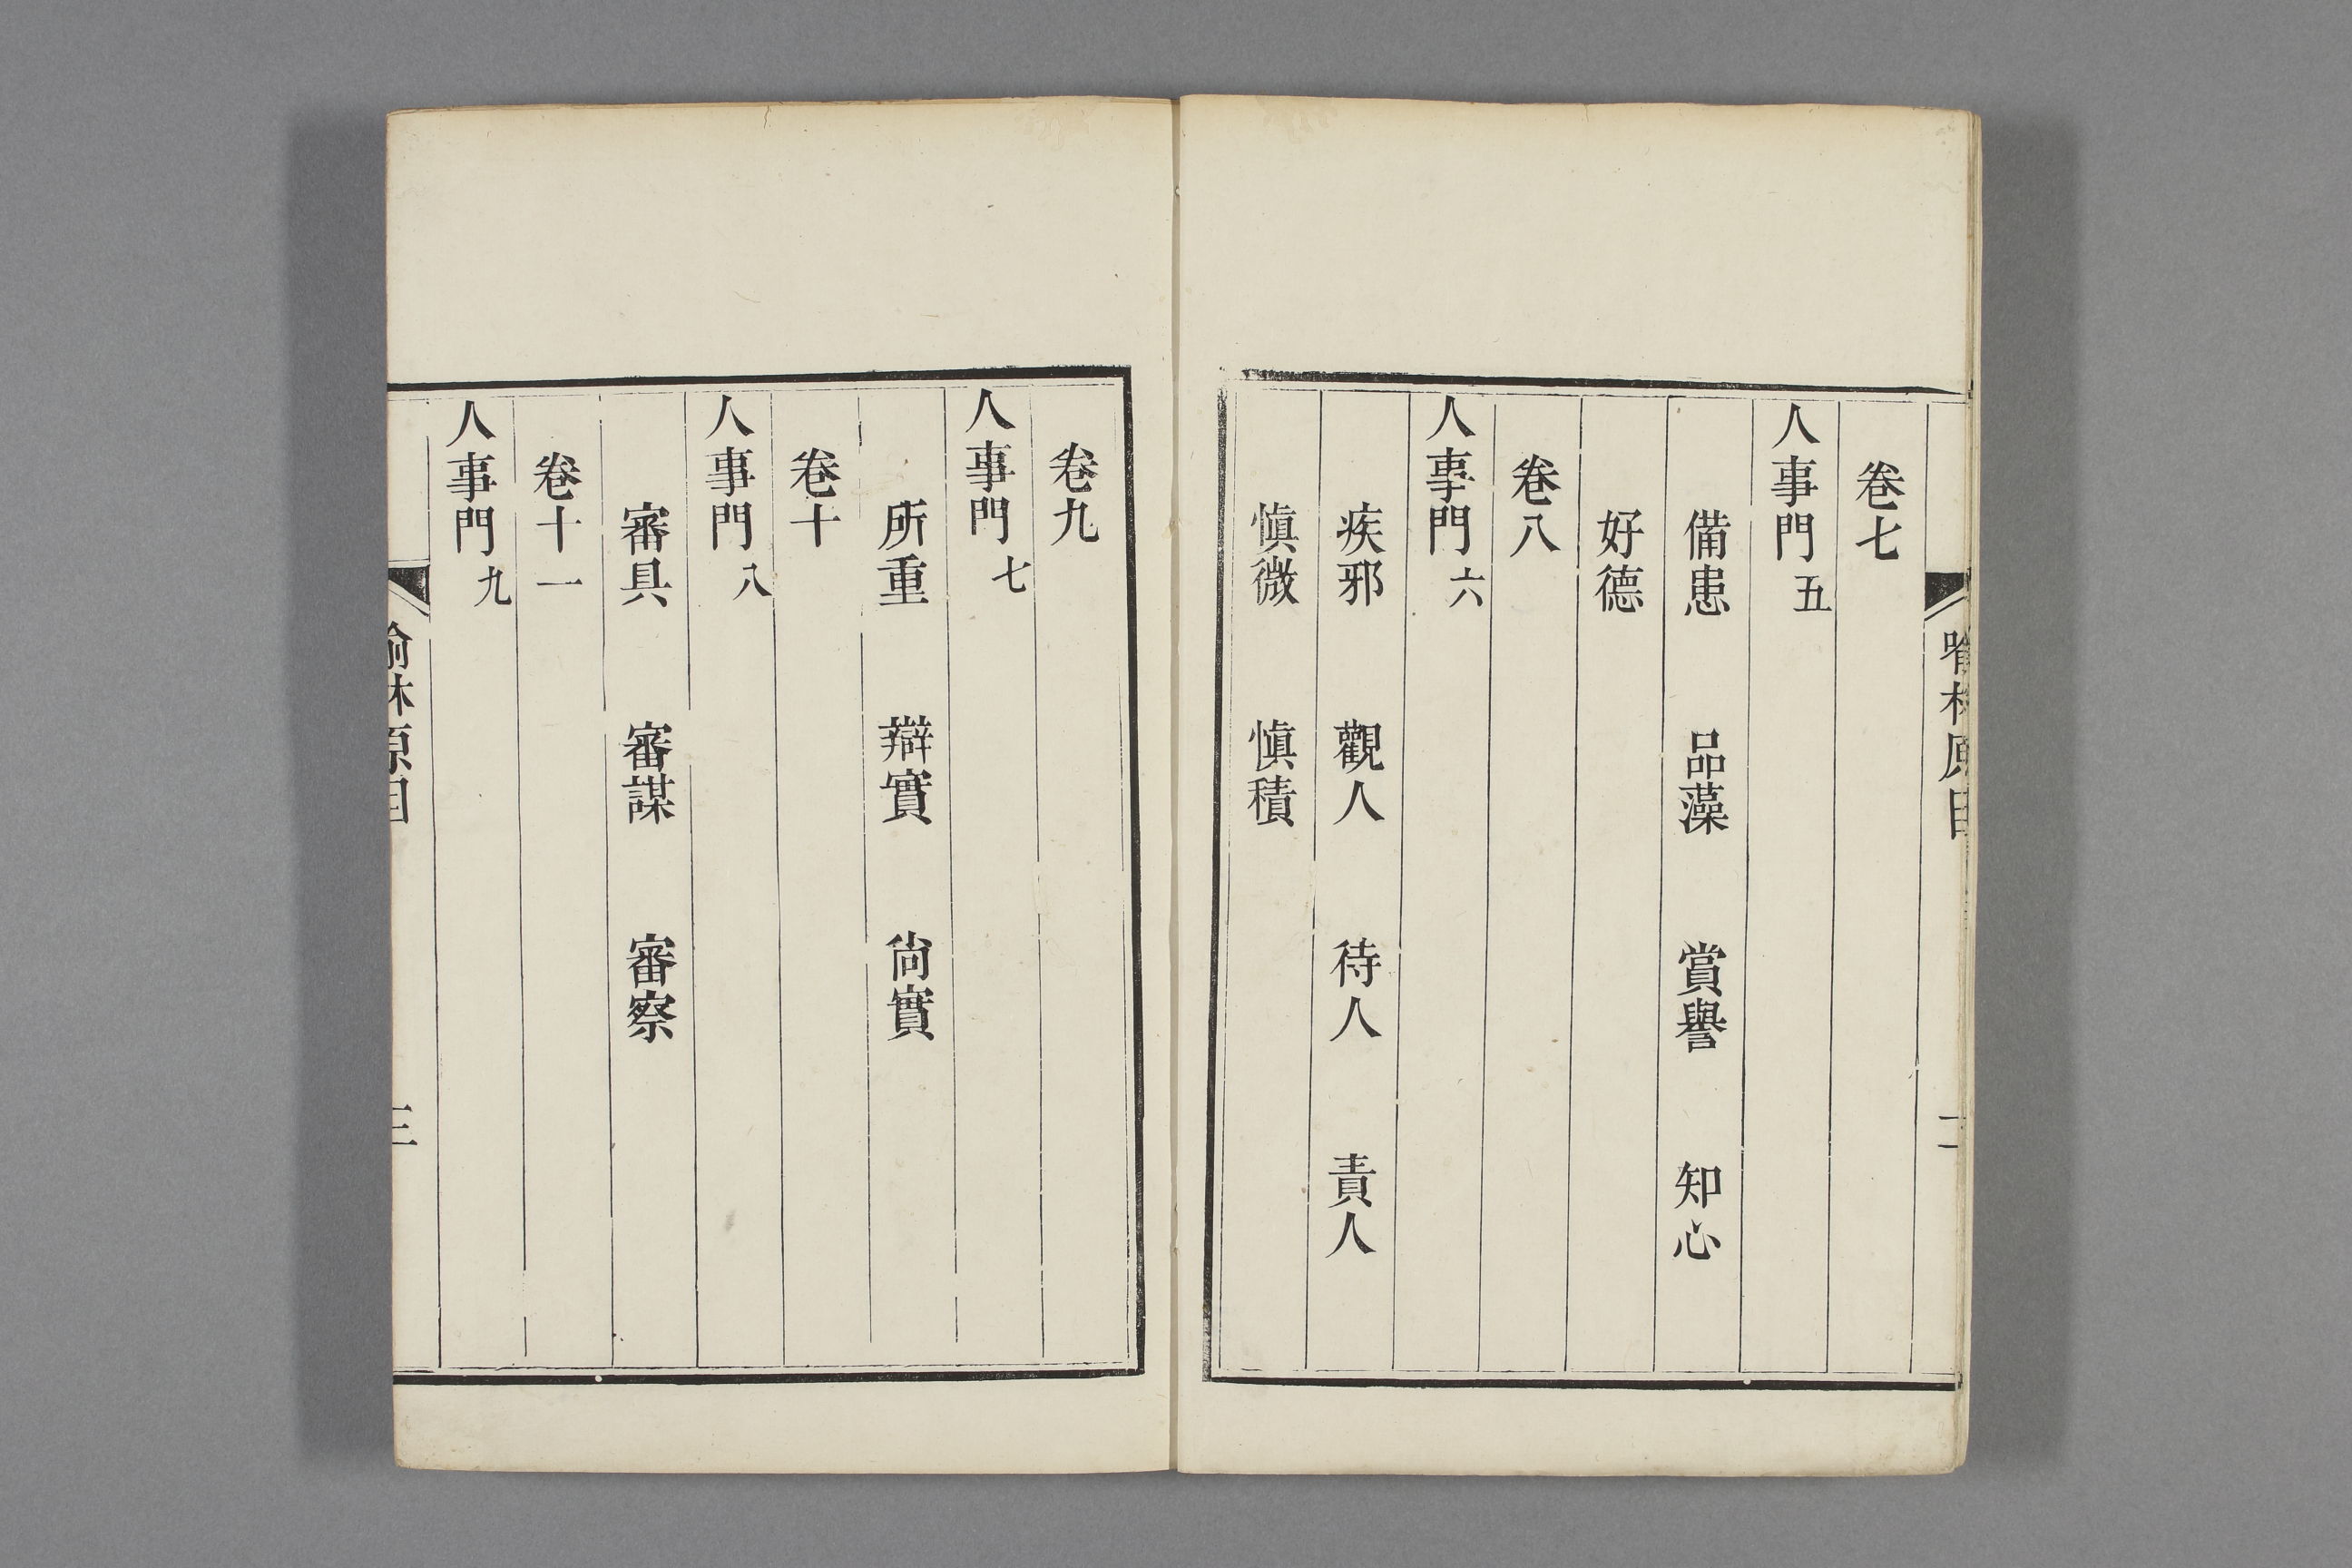 卷七
人事門五
備患 品藻 賞譽 知心
好德
卷八
人事門六
疾邪 觀人 待人 責人
慎微 慎積
卷九
人事門七
所重 辯實 尙實
卷十
人事門八
審具 審謀 審察
卷十一
人事門九
喻林原目 三